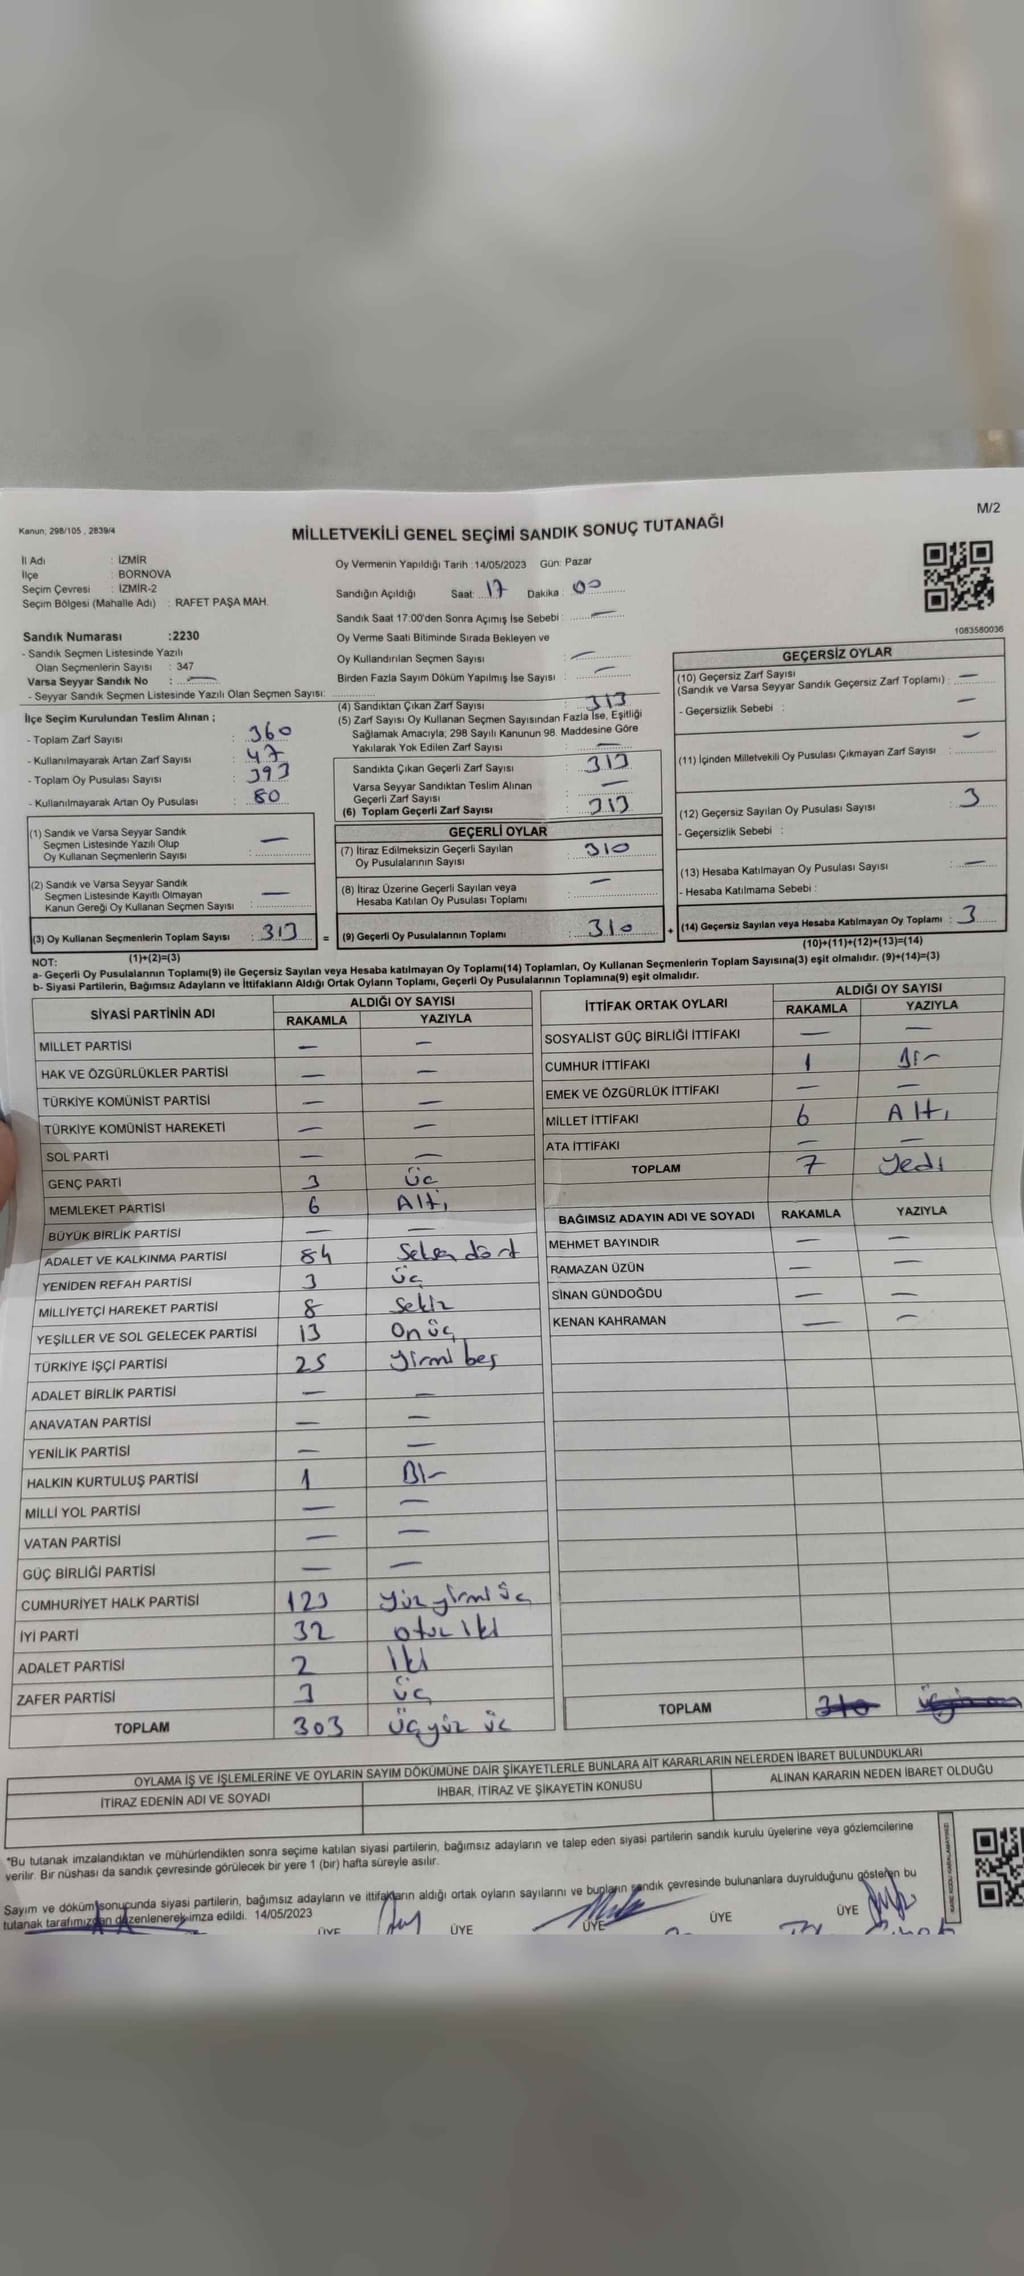 M/2
Kanun; 298/105 , 2839/4
MİLLETVEKİLİ GENEL SEÇİMİ SANDIK SONUÇ TUTANAĞI
İl Adı : İZMİR
İlçe : BORNOVA
Seçim Çevresi : İZMİR-2
Seçim Bölgesi (Mahalle Adı) : RAFET PAŞA MAH.
Sandık Numarası :2230
- Sandık Seçmen Listesinde Yazılı
Olan Seçmenlerin Sayısı : 347
Varsa Seyyar Sandık No : —
- Seyyar Sandık Seçmen Listesinde Yazılı Olan Seçmen Sayısı:
Oy Vermenin Yapıldığı Tarih :14/05/2023 Gün: Pazar
Sandığın Açıldığı Saat: 17 Dakika : 00
Sandık Saat 17:00'den Sonra Açımış İse Sebebi : —
Oy Verme Saati Bitiminde Sırada Bekleyen ve
Oy Kullandırılan Seçmen Sayısı : —
Birden Fazla Sayım Döküm Yapılmış İse Sayısı : —
1083580036
İlçe Seçim Kurulundan Teslim Alınan ;
- Toplam Zarf Sayısı : 360
- Kullanılmayarak Artan Zarf Sayısı : 47
- Toplam Oy Pusulası Sayısı : 393
- Kullanılmayarak Artan Oy Pusulası : 80
(1) Sandık ve Varsa Seyyar Sandık
Seçmen Listesinde Yazılı Olup
Oy Kullanan Seçmenlerin Sayısı : —
(2) Sandık ve Varsa Seyyar Sandık
Seçmen Listesinde Kayıtlı Olmayan
Kanun Gereği Oy Kullanan Seçmen Sayısı : —
(3) Oy Kullanan Seçmenlerin Toplam Sayısı : 313 =
(1)+(2)=(3)
(4) Sandıktan Çıkan Zarf Sayısı : 313
(5) Zarf Sayısı Oy Kullanan Seçmen Sayısından Fazla İse, Eşitliği
Sağlamak Amacıyla; 298 Sayılı Kanunun 98. Maddesine Göre
Yakılarak Yok Edilen Zarf Sayısı : —
Sandıkta Çıkan Geçerli Zarf Sayısı : 313
Varsa Seyyar Sandıktan Teslim Alınan
Geçerli Zarf Sayısı : —
(6) Toplam Geçerli Zarf Sayısı : 313
GEÇERLİ OYLAR
(7) İtiraz Edilmeksizin Geçerli Sayılan
Oy Pusulalarının Sayısı : 310
(8) İtiraz Üzerine Geçerli Sayılan veya
Hesaba Katılan Oy Pusulası Toplamı : —
(9) Geçerli Oy Pusulalarının Toplamı : 310 +
GEÇERSİZ OYLAR
(10) Geçersiz Zarf Sayısı
(Sandık ve Varsa Seyyar Sandık Geçersiz Zarf Toplamı) : —
- Geçersizlik Sebebi : —
(11) İçinden Milletvekili Oy Pusulası Çıkmayan Zarf Sayısı : —
(12) Geçersiz Sayılan Oy Pusulası Sayısı : 3
- Geçersizlik Sebebi :
(13) Hesaba Katılmayan Oy Pusulası Sayısı : —
- Hesaba Katılmama Sebebi :
(14) Geçersiz Sayılan veya Hesaba Katılmayan Oy Toplamı : 3
(10)+(11)+(12)+(13)=(14)
NOT:
a- Geçerli Oy Pusulalarının Toplamı(9) ile Geçersiz Sayılan veya Hesaba katılmayan Oy Toplamı(14) Toplamları, Oy Kullanan Seçmenlerin Toplam Sayısına(3) eşit olmalıdır. (9)+(14)=(3)
b- Siyasi Partilerin, Bağımsız Adayların ve İttifakların Aldığı Ortak Oyların Toplamı, Geçerli Oy Pusulalarının Toplamına(9) eşit olmalıdır.
SİYASİ PARTİNİN ADI ALDIĞI OY SAYISI
RAKAMLA YAZIYLA
MİLLET PARTİSİ — —
HAK VE ÖZGÜRLÜKLER PARTİSİ — —
TÜRKİYE KOMÜNİST PARTİSİ — —
TÜRKİYE KOMÜNİST HAREKETİ — —
SOL PARTİ — —
GENÇ PARTİ 3 üç
MEMLEKET PARTİSİ 6 Altı
BÜYÜK BİRLİK PARTİSİ — —
ADALET VE KALKINMA PARTİSİ 84 Seksen dört
YENİDEN REFAH PARTİSİ 3 üç
MİLLİYETÇİ HAREKET PARTİSİ 8 Sekiz
YEŞİLLER VE SOL GELECEK PARTİSİ 13 On üç
TÜRKİYE İŞÇİ PARTİSİ 25 yirmi beş
ADALET BİRLİK PARTİSİ — —
ANAVATAN PARTİSİ — —
YENİLİK PARTİSİ — —
HALKIN KURTULUŞ PARTİSİ 1 Bir
MİLLİ YOL PARTİSİ — —
VATAN PARTİSİ — —
GÜÇ BİRLİĞİ PARTİSİ — —
CUMHURİYET HALK PARTİSİ 123 yüz yirmi üç
İYİ PARTİ 32 otuz iki
ADALET PARTİSİ 2 iki
ZAFER PARTİSİ 3 üç
TOPLAM 303 üçyüz üç
İTTİFAK ORTAK OYLARI ALDIĞI OY SAYISI
RAKAMLA YAZIYLA
SOSYALİST GÜÇ BİRLİĞİ İTTİFAKI — —
CUMHUR İTTİFAKI 1 Bir
EMEK VE ÖZGÜRLÜK İTTİFAKI — —
MİLLET İTTİFAKI 6 Altı
ATA İTTİFAKI — —
TOPLAM 7 yedi
BAĞIMSIZ ADAYIN ADI VE SOYADI RAKAMLA YAZIYLA
MEHMET BAYINDIR — —
RAMAZAN ÜZÜN — —
SİNAN GÜNDOĞDU — —
KENAN KAHRAMAN — —
TOPLAM 310
OYLAMA İŞ VE İŞLEMLERİNE VE OYLARIN SAYIM DÖKÜMÜNE DAİR ŞİKAYETLERLE BUNLARA AİT KARARLARIN NELERDEN İBARET BULUNDUKLARI
İTİRAZ EDENİN ADI VE SOYADI İHBAR, İTİRAZ VE ŞİKAYETİN KONUSU ALINAN KARARIN NEDEN İBARET OLDUĞU
*Bu tutanak imzalandıktan ve mühürlendikten sonra seçime katılan siyasi partilerin, bağımsız adayların ve talep eden siyasi partilerin sandık kurulu üyelerine veya gözlemcilerine
verilir. Bir nüshası da sandık çevresinde görülecek bir yere 1 (bir) hafta süreyle asılır.
Sayım ve döküm sonucunda siyasi partilerin, bağımsız adayların ve ittifakların aldığı ortak oyların sayılarını ve bunların sandık çevresinde bulunanlara duyrulduğunu gösteren bu
tutanak tarafımızdan düzenlenerek imza edildi. 14/05/2023
ÜYE ÜYE ÜYE ÜYE ÜYE